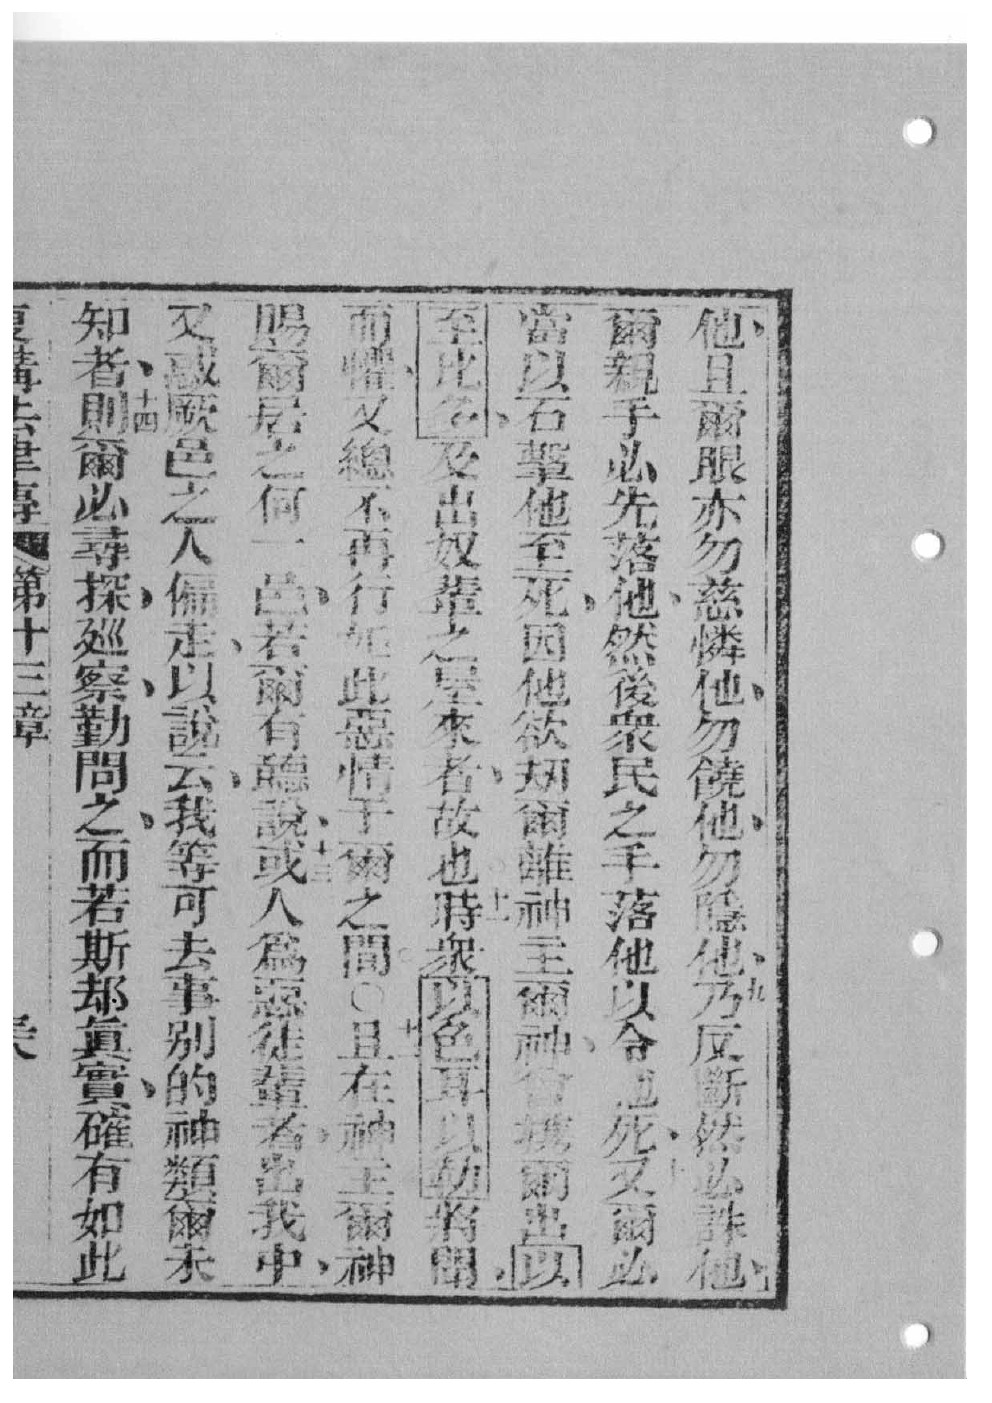 他、且爾眼亦勿慈憐他、勿饒他、勿隱他、九乃反斷然必誅他、
爾親手必先落他、然後衆民之手落他以令他死、十又爾必
當以石擊他至死、因他欲刼爾離神主爾神、曾攜爾出以
至比多、及出奴輩之屋來者、故也。十一時衆以色耳以勒將聞、
而懼、又總不再行如此惡情于爾之間。○十二且在神主爾神
賜爾居之何一邑、若爾有聽說、十三或人爲惡徒輩者、出我中、
又惑厥邑之人偏走、以說云、我等可去事別的神類爾未
知者、十四則爾必尋探、廵察、勤問之、而若斯却眞實、確有如此
復講法律傳 第十三章